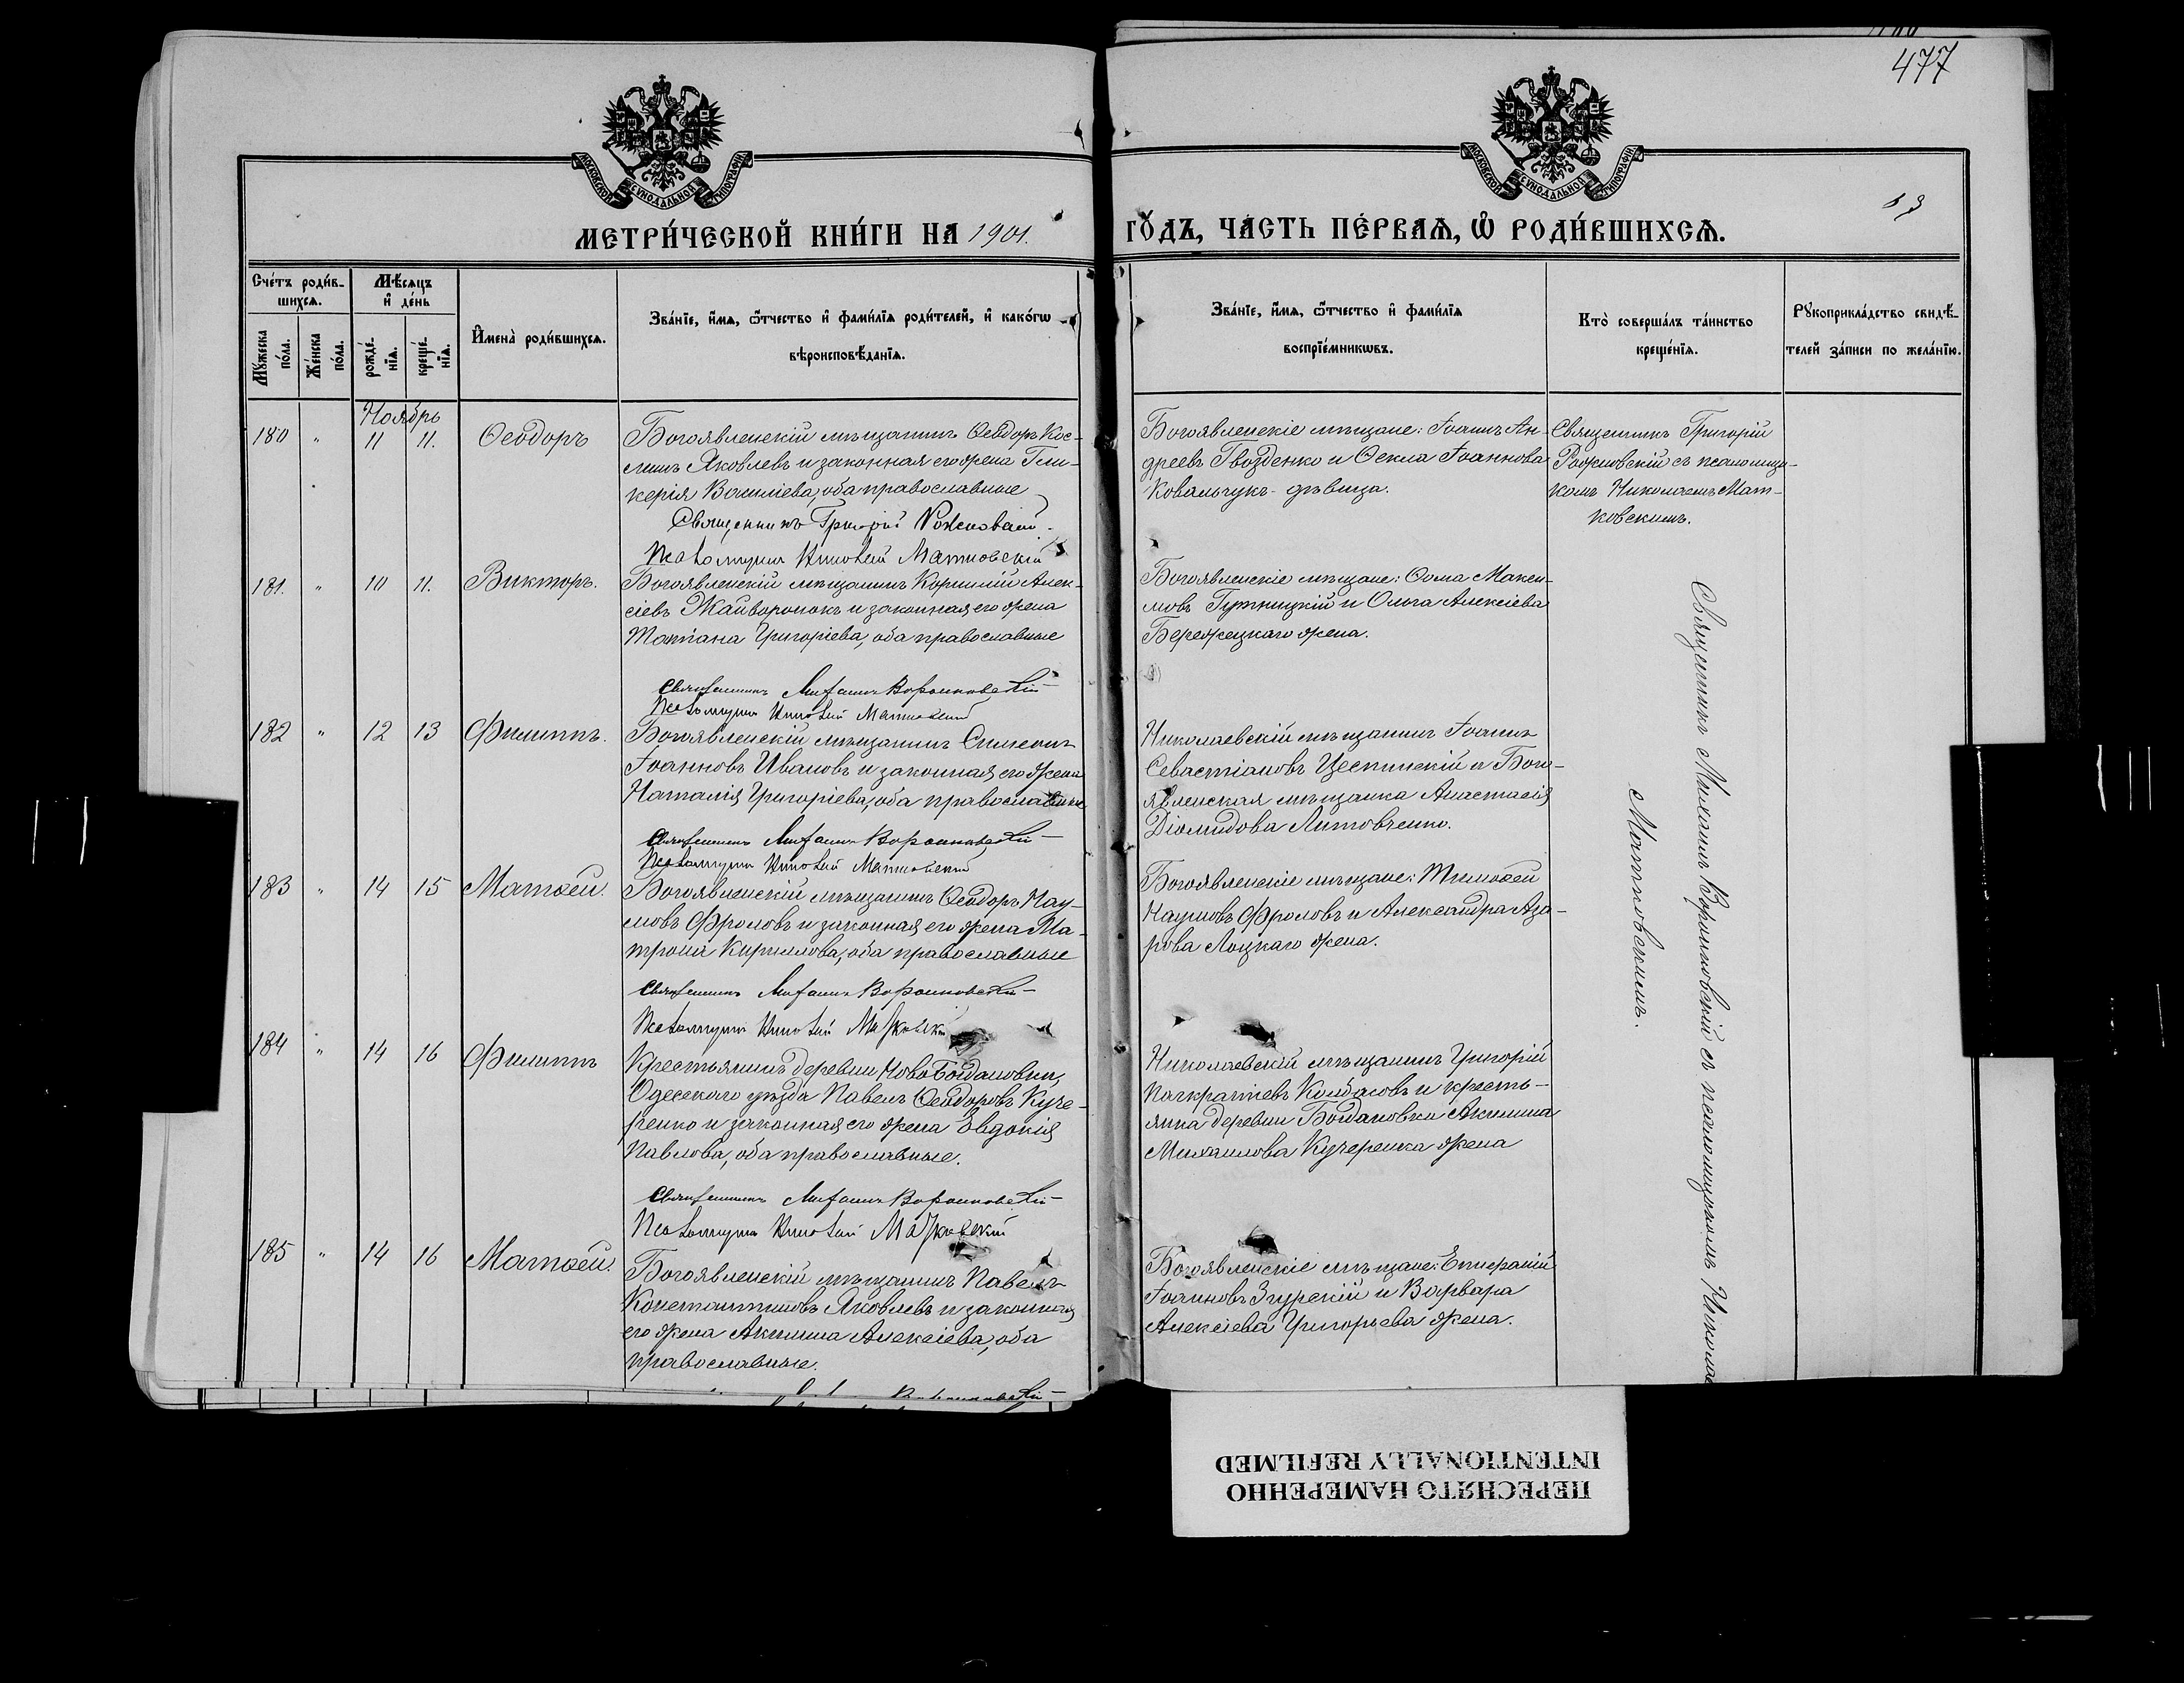 477
МОСКОВСКОЙ СѴНОДАЛЬНОЙ ТИПОГРАФІИ
МОСКОВСКОЙ СѴНОДАЛЬНОЙ ТИПОГРАФІИ
МЕТРИ́ЧЕСКОЙ КНИ́ГИ НА 1901.
ГО́ДЪ, ЧА́СТЬ ПЕ́РВАѦ, Ѿ РОДИ́ВШИХСѦ.
Сче́тъ роди́в-
шихсѧ.
Мѣ́сѧцъ
и де́нь
Мꙋ́жеска
по́ла.
Же́нска
по́ла.
рожде́-
нїѧ.
креще́-
нїѧ.
Имена̀ роди́вшихсѧ.
Зва́нїе, и́мѧ, ѻ́тчество и фами́лїѧ роди́телей, и како́гѡ
вѣроисповѣ́данїѧ.
Зва́нїе, и́мѧ, ѻ́тчество и фами́лїѧ
воспрїе́мникѡвъ.
Кто̀ соверша́лъ та́инство
креще́нїѧ.
Рꙋкоприкла́дство свидѣ́-
телей за́писи по жела́нїю.
Ноябрь
180 " 11 11. Ѳеодоръ
Богоявленскій мѣщанинъ Ѳеодоръ Кос-
миnъ Яковлевъ и законная его жена Гли-
керія Василіева, оба православные
Священникъ Григорій Рожновскій.
Псаломщикъ Николай Матковскій
Богоявленскіе мѣщане: Іоаннъ Ан-
дреевъ Гвозденко и Ѳекла Іоаннова
Ковальчукъ - дѣвица.
Священникъ Григорій
Рожновскій съ псаломщи-
комъ Николаемъ Мат-
ковскимъ.
181. " 10 11. Викторъ.
Богоявленскій мѣщанинъ Корнилій Алек-
сіевъ Жайворонокъ и законная его жена
Татіана Григоріева, оба православные
Священникъ Михаилъ Воронковскій
Псаломщикъ Николай Матковскій
Богоявленскіе мѣщане: Ѳома Макси-
мовъ Гутницкій и Ольга Алексіева
Бережецкаго жена.
182 " 12 13 Филиппъ.
Богоявленскій мѣщанинъ Симеонъ
Іоанновъ Ивановъ и законная его жена
Наталія Григоріева, оба православные
Священникъ Михаилъ Воронковскій
Псаломщикъ Николай Матковскій
Николаевскій мѣщанинъ Іоаннъ
Севастіановъ Цеспинскій и Бого-
явленская мѣщанка Анастасія
Діомидова Литовченко.
183 " 14 15 Матѳей.
Богоявленскій мѣщанинъ Ѳеодоръ Нау-
мовъ Фроловъ и законная его жена Ма-
трона Кириллова, оба православные
Священникъ Михаилъ Воронковскій
Псаломщикъ Николай Матковскій
Богоявленскіе мѣщане: Тимоѳей
Наумовъ Фроловъ и Александра Аза-
рова Лоцкаго жена.
184 " 14 16 Филиппъ
Крестьянинъ деревни Ново Богдановки,
Одесскаго уѣзда Павелъ Ѳеодоровъ Куче-
ренко и законная его жена Евдокія
Павлова, оба православные.
Священникъ Михаилъ Воронковскій
Псаломщикъ Николай Матковскій
Николаевскій мѣщанинъ Григорій
Панкратіевъ Колбасовъ и кресть-
янка деревни Богдановки Акилина
Михаилова Кучеренка жена
185 " 14 16 Матѳей.
Богоявленскій мѣщанинъ Павелъ
Константиновъ Яковлевъ и законная
его жена Акилина Алексіева, оба
православные.
Богоявленскіе мѣщане: Епифаній
Іоанновъ Згурскій и Варвара
Алексіева Григорьева жена.
Священникъ Михаилъ Воронковскій съ псаломщикомъ Николае
Матковскимъ.
ПЕРЕСНЯТО НАМЕРЕННО
INTENTIONALLY REFILMED